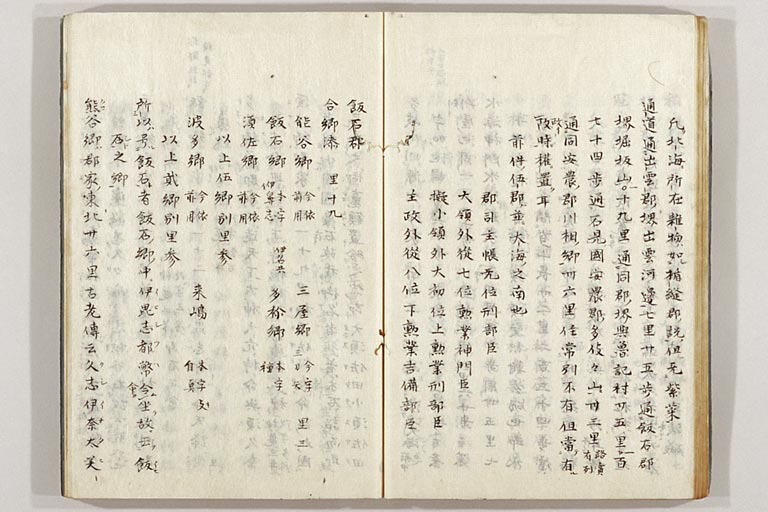 凡北海所在雜物如楯縫郡說但无紫菜
通道通出雲郡堺出雲河邊七里廿五步通飯石郡
堺堀坂山一十九里通同郡堺與曽記村廿五里一百
七十四步通石見國安農郡多伎々山卅三里路常有剗
通同安農郡川相鄉卅六里徑常剗不有但當有
政時權置耳
前件伍郡並大海之南也
郡司主帳无位刑部臣
大領外從七位勲業神門臣
擬小領外大初位上勲業刑部臣
主政外從八位下勲業吉備部臣
飯石郡
合鄉漆 里十九
熊谷鄉 今依前用 三屋鄉 今字三刀矢 里三
飯石鄉 本字伊鼻志 多祢鄉 本字種
須佐鄉 今依前用
以上伍鄉別里參
波多鄉 今依前用 来嶋 本字支自真
以上貳鄉別里參
所以号飯石者飯石鄉中伊毘志都幣命坐故云飯
石之鄉
熊谷鄉郡家東北廿六里古老傳云久志伊奈太美